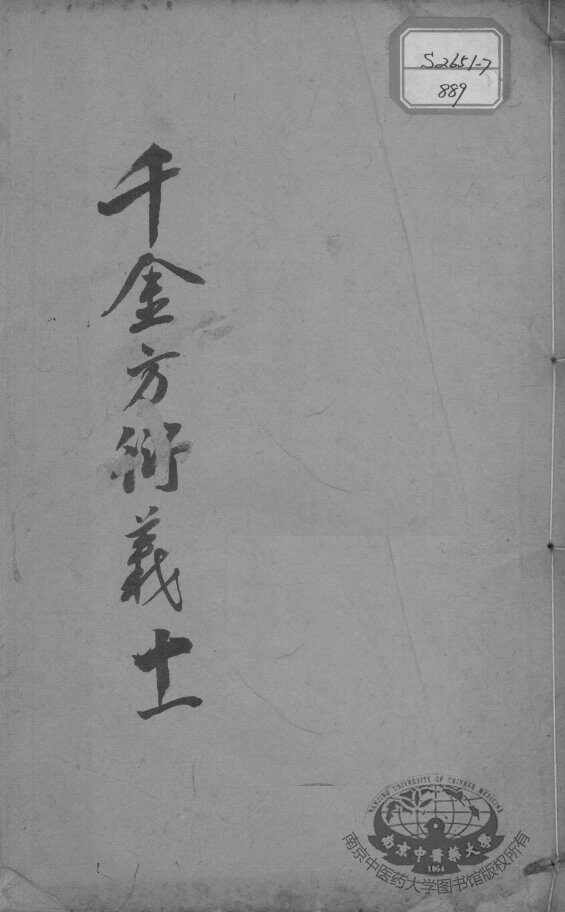 S2651-7
889
千金方衍義十一
NANJING UNIVERSITY OF CHINESE MEDICINE
南京中醫藥大學
1954
南京中医药大学图书馆版权所有